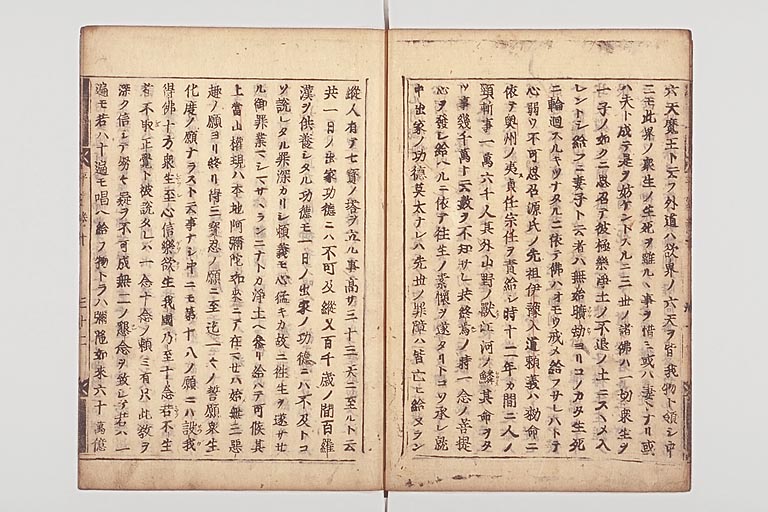 六天魔王ト云フ外道ハ欲界ノ六天ヲ皆我物ト領シ中
ニモ此界ノ衆生ノ生死ヲ離ルヽ事ヲ惜ミ或ハ妻トナリ或
ハ夫ト成テ是ヲ妨ケントスルニ三世ノ諸佛ハ一切衆生ヲ
一子ノ如クニ思召テ彼極樂淨土ノ不退ノ土ニスヽメ入
レントシ給フニ妻子ト云者ハ無始曠劫ヨリコノカタ生死
ニ輪迴スルキツナタルニ依テ佛ハオモク戒メ給フサレハトテ
心弱ウ不可思召源氏ノ先祖伊豫入道頼義ハ勅命ニ
依テ奥州ノ夷貞任宗任ヲ責給シ時十二年カ間ニ人ノ
頸斬事一萬六千人其外山野ノ獸江河ノ鱗其命ヲタ
ツ事幾千萬ト云數ヲ不知サレ共終焉ノ時一念ノ菩提
心ヲ發シ給ヘルニ依テ往生ノ素懷ヲ遂タリトコソ承レ就
中出家ノ功德莫太ナレハ先世ノ罪障ハ皆亡ヒ給タラン
縱人有テ七寳ノ塔ヲ立ル事高サ三十三天ニ至ルト云
共一日ノ出家功德ニハ不可及縱又百千歳ノ間百羅
漢ヲ供養シタル功德モ一日ノ出家ノ功德ニハ不及トコ
ソ説レタル罪深カリシ頼義モ心猛キカ故ニ往生ヲ遂サセ
ル御罪業マシマサヽランニナトカ淨土ヘ參リ給ハテ可候其
上當山權現ハ本地阿彌陀如來ニテ在マセハ始無三惡
趣ノ願ヨリ終リ得三寳忍ノ願ニ至迄一々ノ誓願衆生
化度ノ願ナラスト云事ナシ中ニモ第十八ノ願ニハ設我
得佛十方衆生至心信樂欲生我國乃至十念若不生
者不取正覺ト被説タレハ一念十念ノ頼ミ有只此教ヲ
深ク信シテ努々疑ヲ不可成無二ノ懇念ヲ致シテ若ハ一
遍モ若ハ十遍モ唱ヘ給フ物トラハ彌陀如來六十萬億